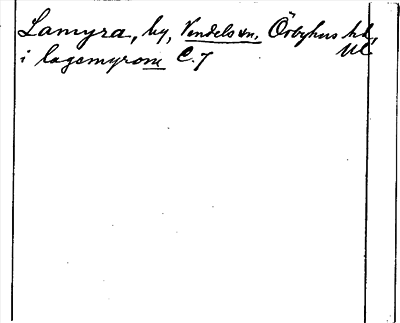 Lamyra, by, Vendels sn, Örbyhus hd, Ul.
i lagemyrom C. 7